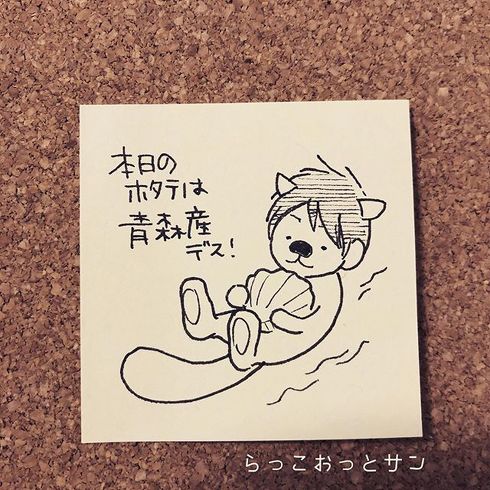 本日の
ホタテは
青森産
デス!
らっこおっとサン